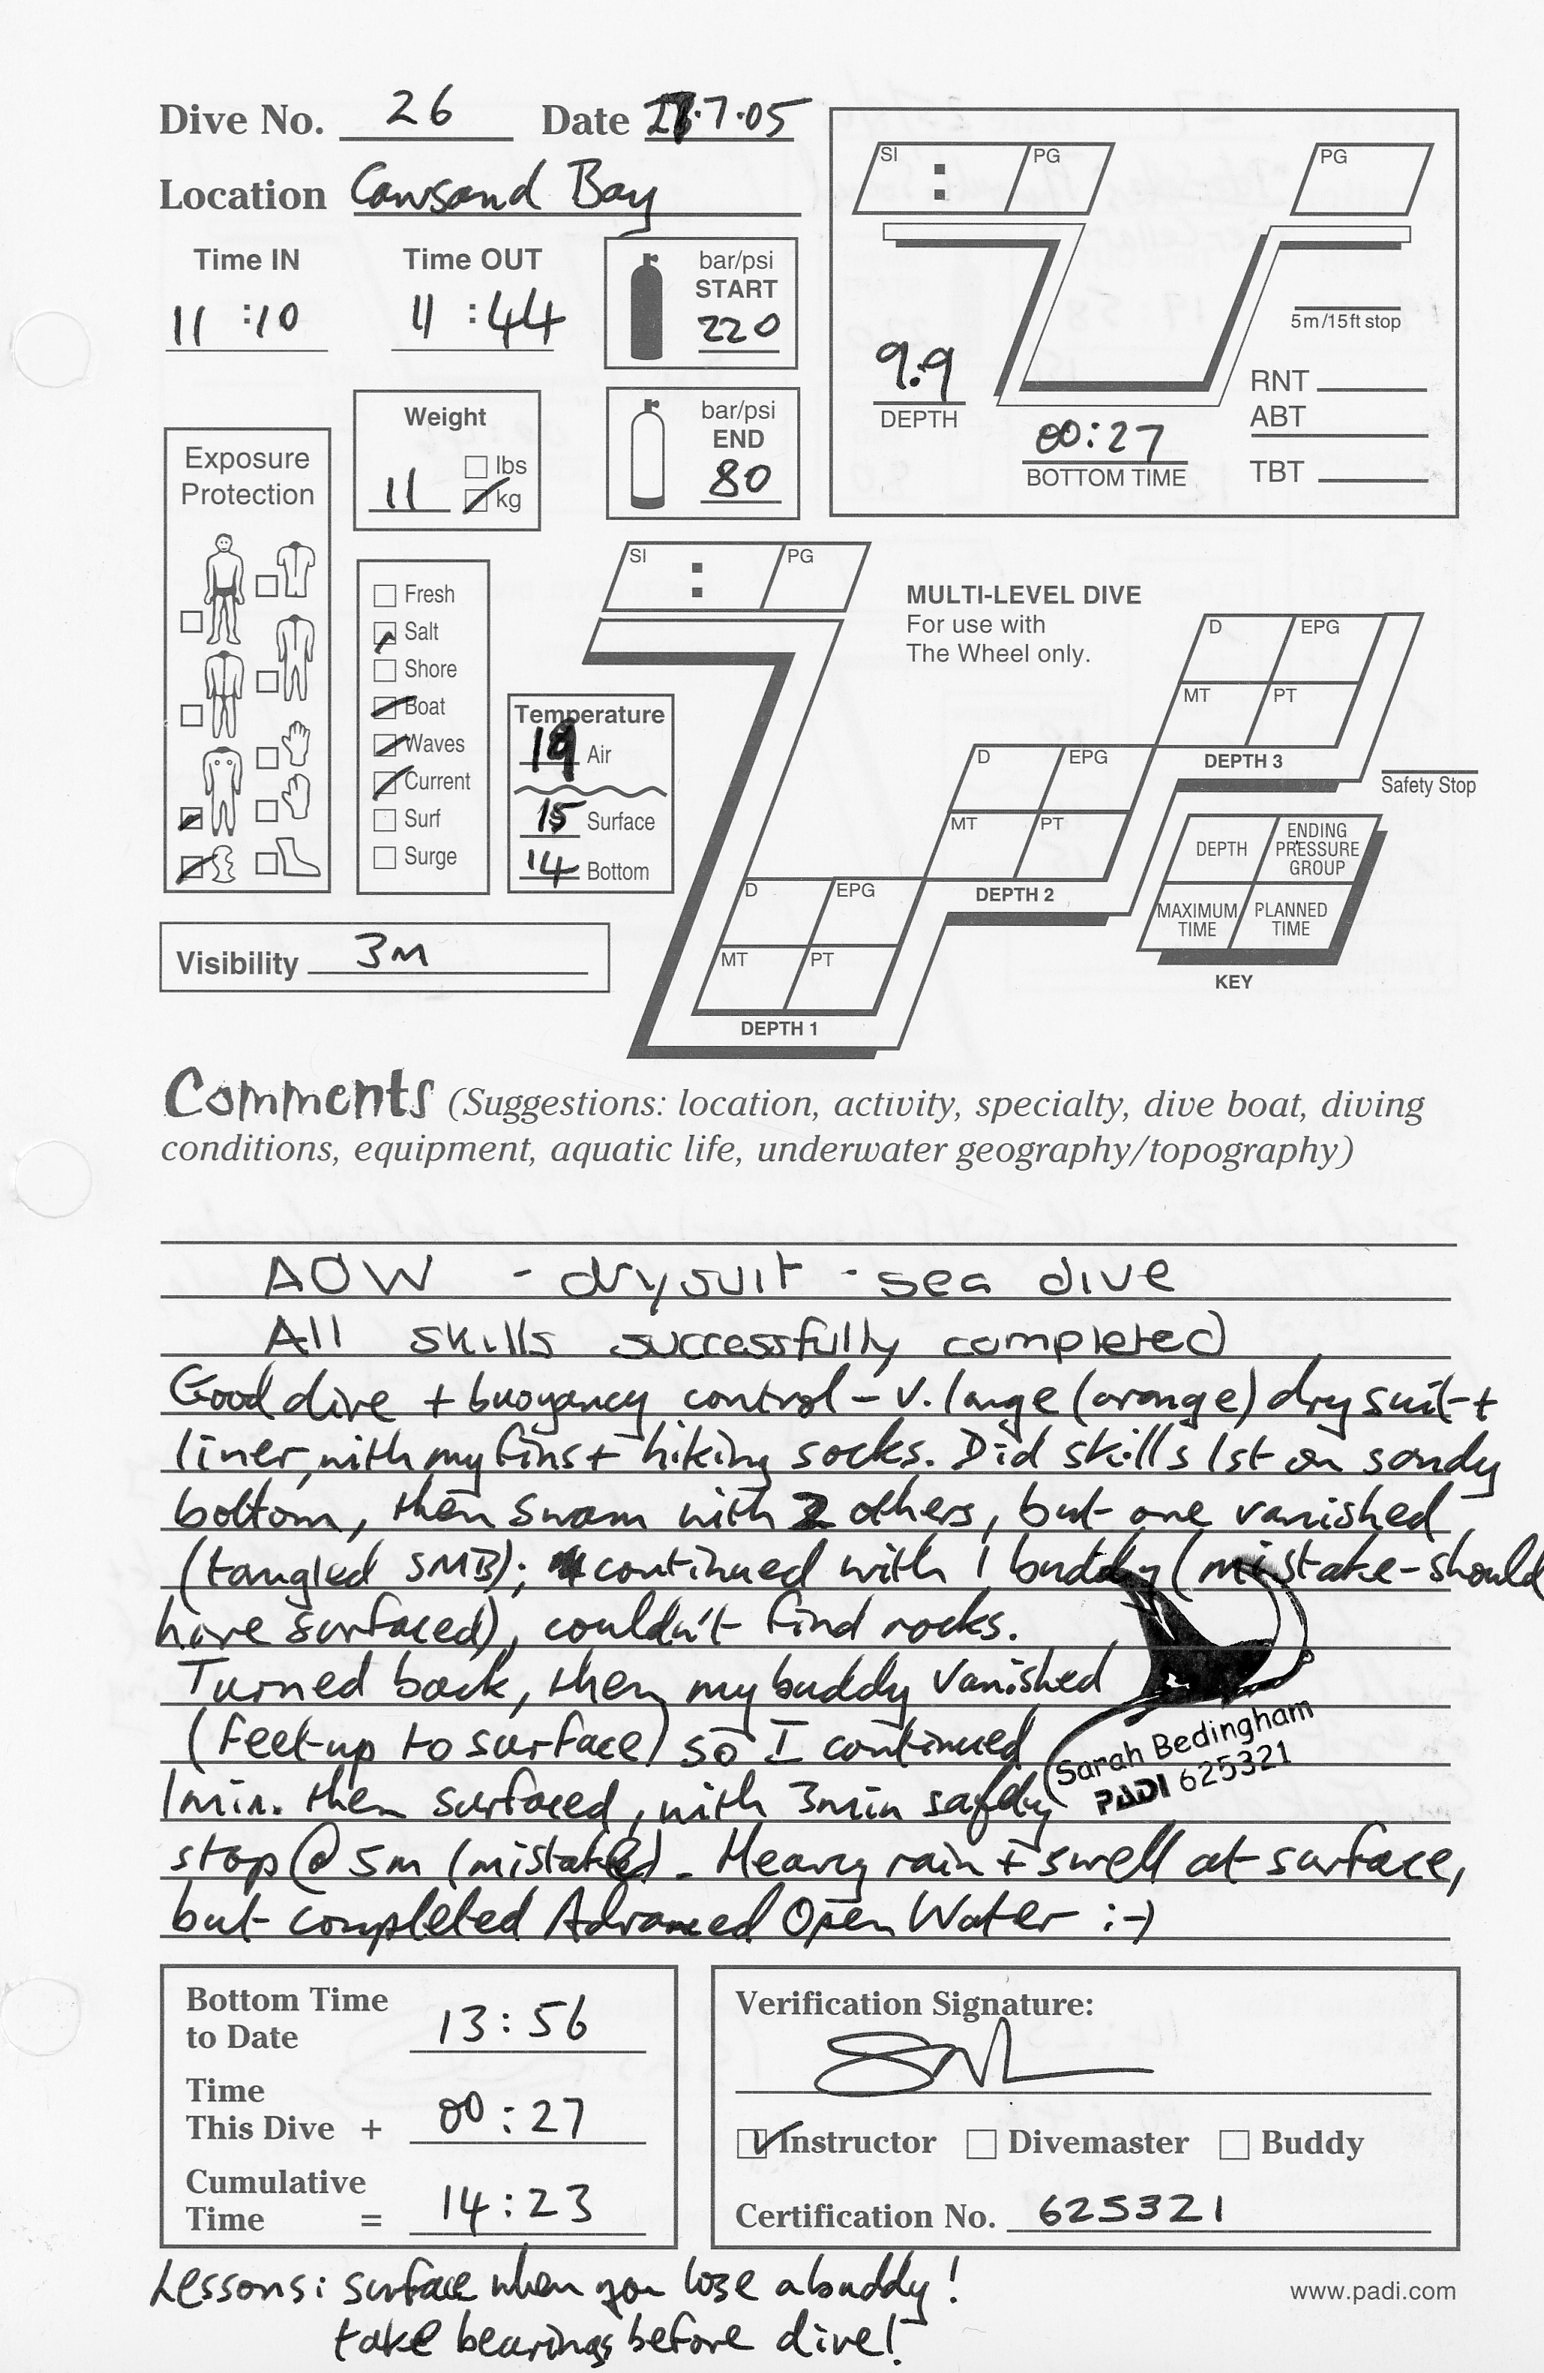 Dive No. 26 Date 27.7.05
Location Cawsand Bay
Time IN Time OUT
11:10 11:44
bar/psi
START
220
bar/psi
END
80
Weight
11 lbs
kg
Exposure
Protection
Fresh
Salt
Shore
Boat
Waves
Current
Surf
Surge
Temperature
19 Air
15 Surface
14 Bottom
Visibility 3m
SI : PG PG
5m/15ft stop
9.9
DEPTH
00:27
BOTTOM TIME
RNT
ABT
TBT
SI : PG
MULTI-LEVEL DIVE
For use with
The Wheel only.
D EPG
MT PT
DEPTH 3
D EPG
MT PT
DEPTH 2
D EPG
MT PT
DEPTH 1
Safety Stop
DEPTH ENDING PRESSURE GROUP
MAXIMUM TIME PLANNED TIME
KEY
Comments (Suggestions: location, activity, specialty, dive boat, diving
conditions, equipment, aquatic life, underwater geography/topography)
AOW - drysuit - sea dive
All skills successfully completed
Good dive + buoyancy control – v. large (orange) dry suit +
liner, with my fins + hiking socks. Did skills 1st on sandy
bottom, then swam with 2 others, but one vanished
(tangled SMB); continued with 1 buddy (mistake – should
have surfaced), couldn't find rocks.
Turned back, then my buddy vanished
(feet-up to surface) so I continued
1min. then surfaced, with 3min safety
stop @ 5m (mistake). Heavy rain + swell at surface,
but completed Advanced Open Water :-)
Sarah Bedingham
PADI 625321
Bottom Time
to Date 13:56
Time
This Dive + 00:27
Cumulative
Time = 14:23
Verification Signature:
Instructor Divemaster Buddy
Certification No. 625321
Lessons: surface when you lose a buddy!
take bearings before dive!
www.padi.com